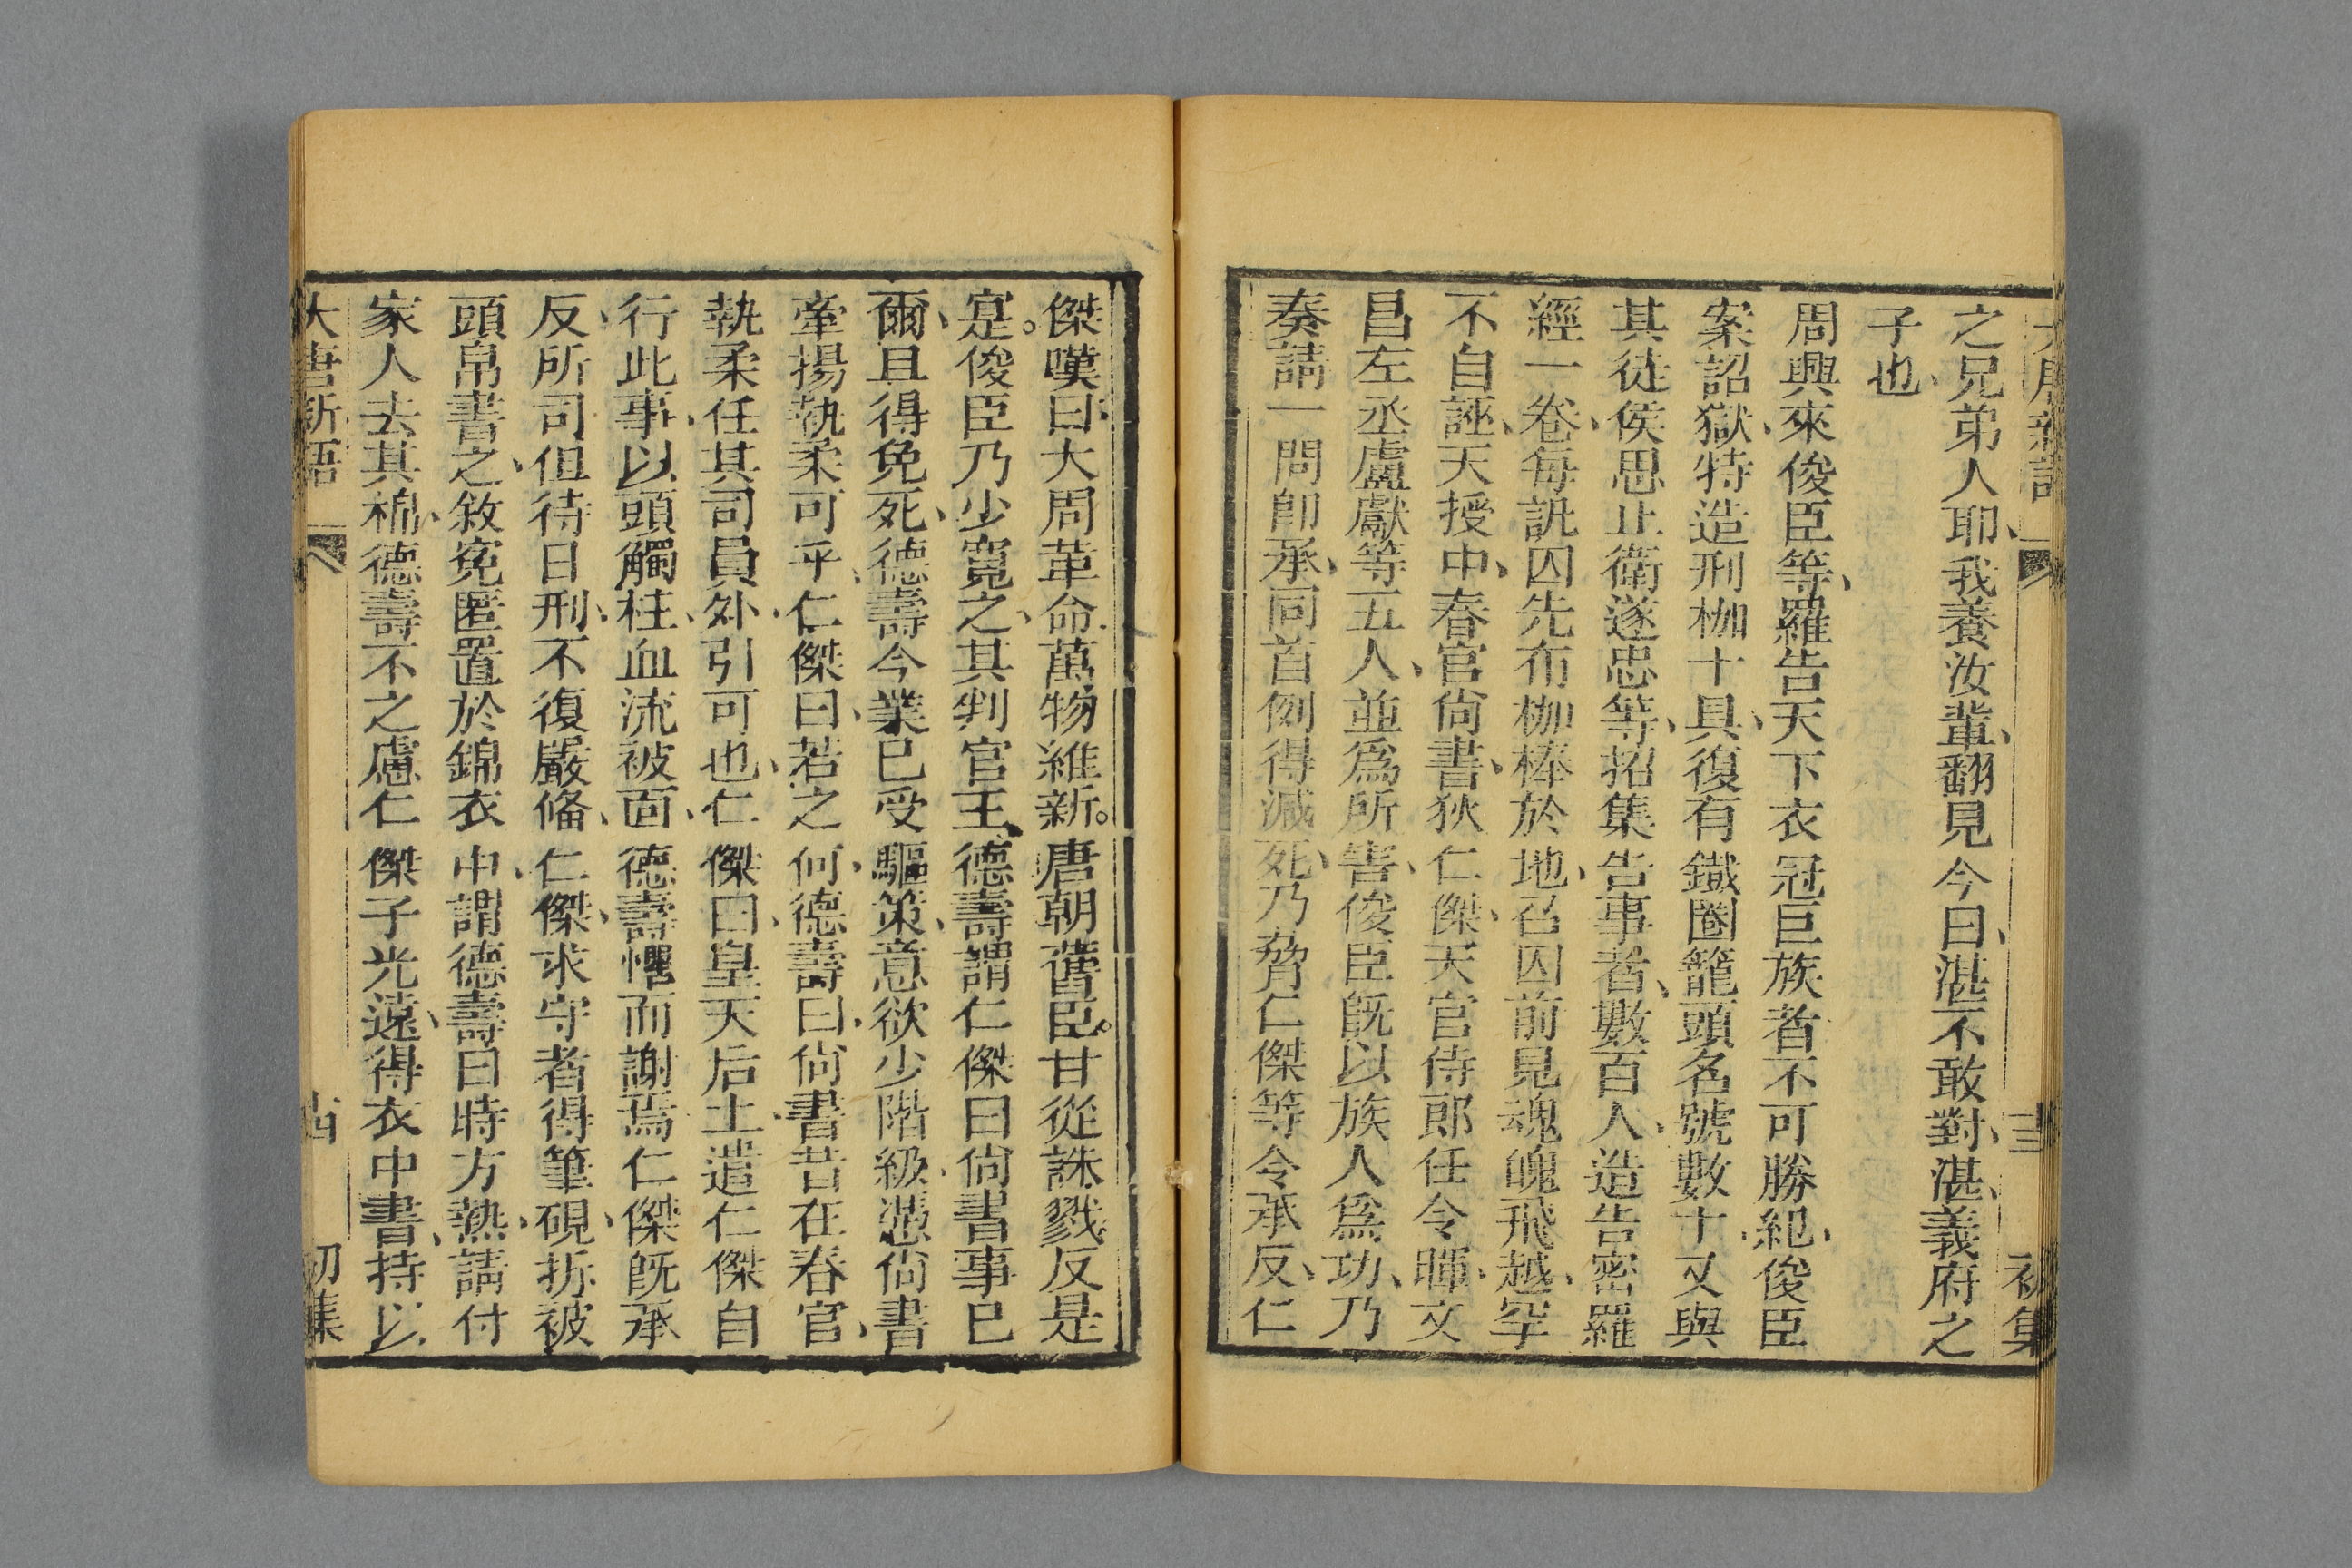 大唐新語 十三 初集
之兄弟人耶、我養汝輩、翻見今日、湛不敢對、湛、義府之
子也、
周興來俊臣等、羅告天下衣冠巨族者不可勝紀、俊臣
案詔獄、特造刑枷十具、復有鐵圈籠頭名號數十又與
其徒侯思止衛遂忠等、招集告事者、數百人、造告密羅
經一卷、每訊囚先布枷棒於地、召囚前見魂魄飛越、罕
不自誣、天授中、春官尙書、狄仁傑、天官侍郎任令暉、文
昌左丞盧獻等五人、並爲所告、俊臣旣以族人爲功、乃
奏請一問卽承、同首例得減死、乃脅仁傑等令承反、仁
傑嘆曰、大周革命、萬物維新。唐朝舊臣。甘從誅戮、反是
寔。俊臣乃少寬之、其判官王、德壽謂仁傑曰尙書事已
爾、且得免死、德壽今業已受驅策、意欲少階級、憑尙書
牽揚執柔可乎、仁傑曰、若之何、德壽曰、尙書昔在春官、
執柔任其司員外、引可也、仁傑曰、皇天后土、遣仁傑自
行此事、以頭觸柱、血流被面、德壽懼而謝焉、仁傑旣承
反、所司但待日刑、不復嚴備、仁傑、求守者得筆硯、拆被
頭帛書之、敘冤匿置於錦衣中、謂德壽曰時方熱、請付
家人去其棉、德壽不之慮仁傑子光遠、得衣中書、持以
大唐新語 十四 初集